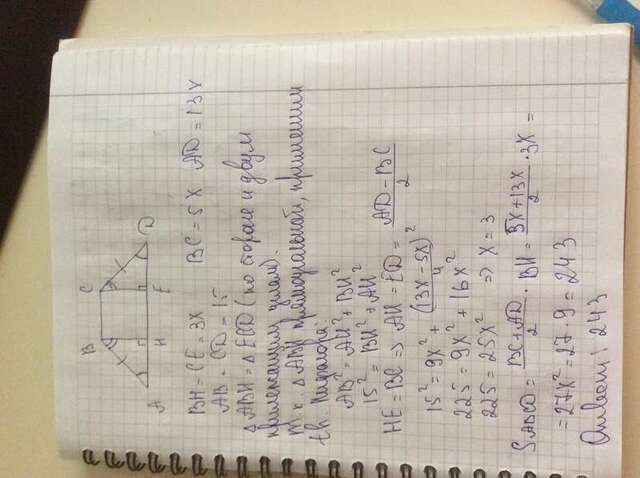 B C
A H E D
BH = CE = 3x BC = 5x AD = 13x
AB = CD = 15
△ABH = △ECD (по стороне и двум
прилежащим углам).
Т.к. △ABH прямоугольный, применим
th. Пифагора:
AB² = AH² + BH²
15² = BH² + AH²
HE = BC => AH = ED = (AD - BC)/2
15² = 9x² + (13x - 5x)²/4
225 = 9x² + 16x²
225 = 25x² => x = 3
S ABCD = (BC + AD)/2 · BH = (5x + 13x)/2 · 3x =
= 27x² = 27 · 9 = 243
Ответ: 243